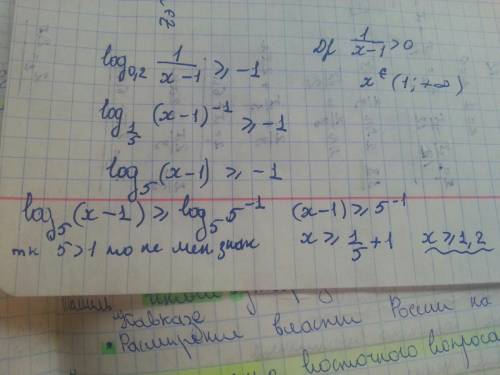 log₀,₂ 1/(x-1) ≥ -1
Df 1/(x-1) > 0
x ∈ (1; +∞)
log₁/₅ (x-1)⁻¹ ≥ -1
log₅ (x-1) ≥ -1
log₅ (x-1) ≥ log₅ 5⁻¹
(x-1) ≥ 5⁻¹
тк 5>1 то не мен знак
x ≥ 1/5 + 1
x ≥ 1,2
Кавказе
• Расширения власти России на
восточного вопроса